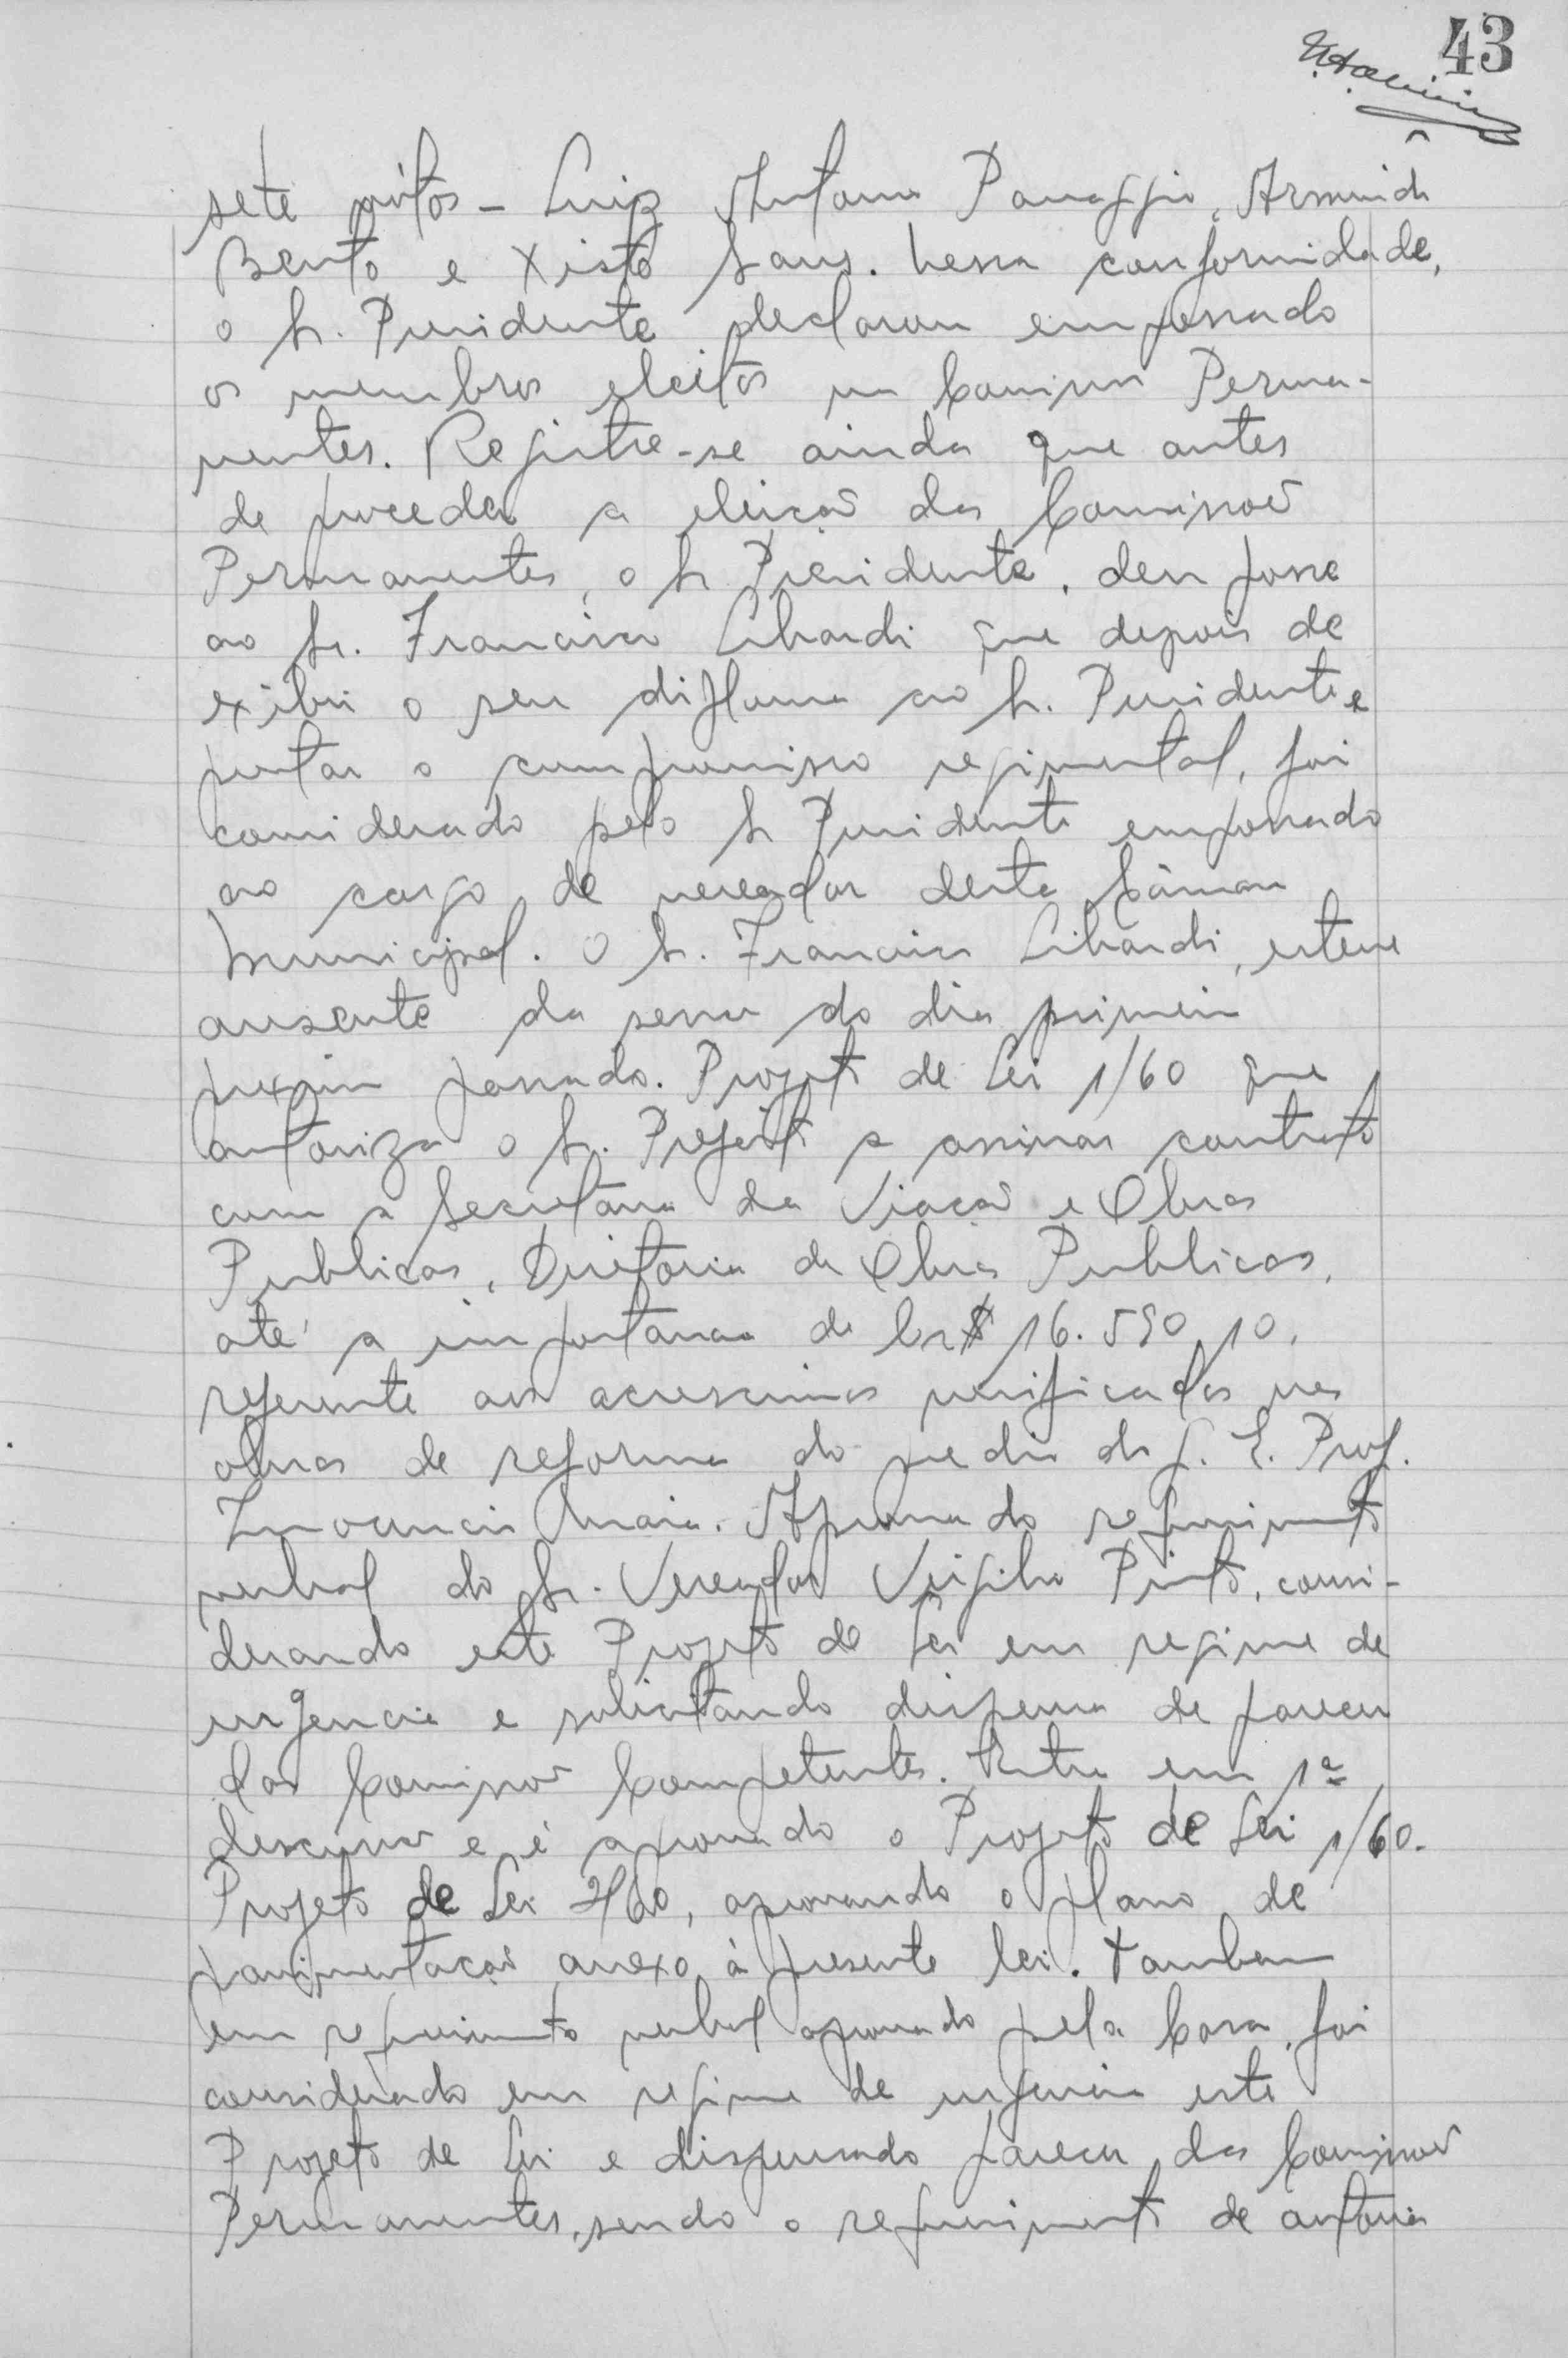 43
sete vótos - Luiz Antonio Panaggio, Armindo
Bento e Xisto Sans. Nessa conformidade,
o Sr. Presidente declarou empossado
os membros eleitos nas Comissões Perma-
nentes. Registre-se ainda que antes
de proceder a eleição das Comissões
Permanentes, o Sr Presidente, deu posse
ao Sr. Francisco Libardi que depois de
exibir o seu diploma ao Sr. Presidente e
prestar o compromisso regimental, foi
considerado pelo Sr Presidente empossado
ao cargo de vereador desta Câmara
Municipal. O Sr. Francisco Libardi, esteve
ausente da sessão do dia primeiro
proximo passado. Projeto de Lei 1/60 que
autoriza o Sr. Prefeito a assinar contrato
com a Secretaria da Viação e Obras
Publicas, Diretoria de Obras Publicas,
até a importancia de Cr$ 16.590,10,
referente aos acrescimos verificados nas
obras de reforma do predio do G. E. Prof.
Inocencio Maia. Aprovado requerimento
verbal do Sr. Vereador Virgilio Pinto, consi-
derando este Projeto de Lei em regime de
urgencia e solicitando dispensa de parecer
das Comissões Competentes. Entra em 1ª
discussão e é aprovado o Projeto de Lei 1/60.
Projeto de Lei 2/60, aprovando o plano de
pavimentação anexo à presente lei. Tambem
em requerimento verbal aprovado pela Casa, foi
considerado em regime de urgencia este
Projeto de Lei e dispensado parecer das Comissões
Permanentes, sendo o requerimento de autoria